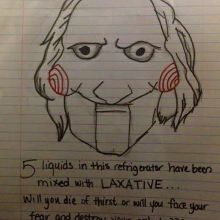 5 liquids in this refrigerator have been
mixed with LAXATIVE...
Will you die of thirst or will you face your
fear and destroy your